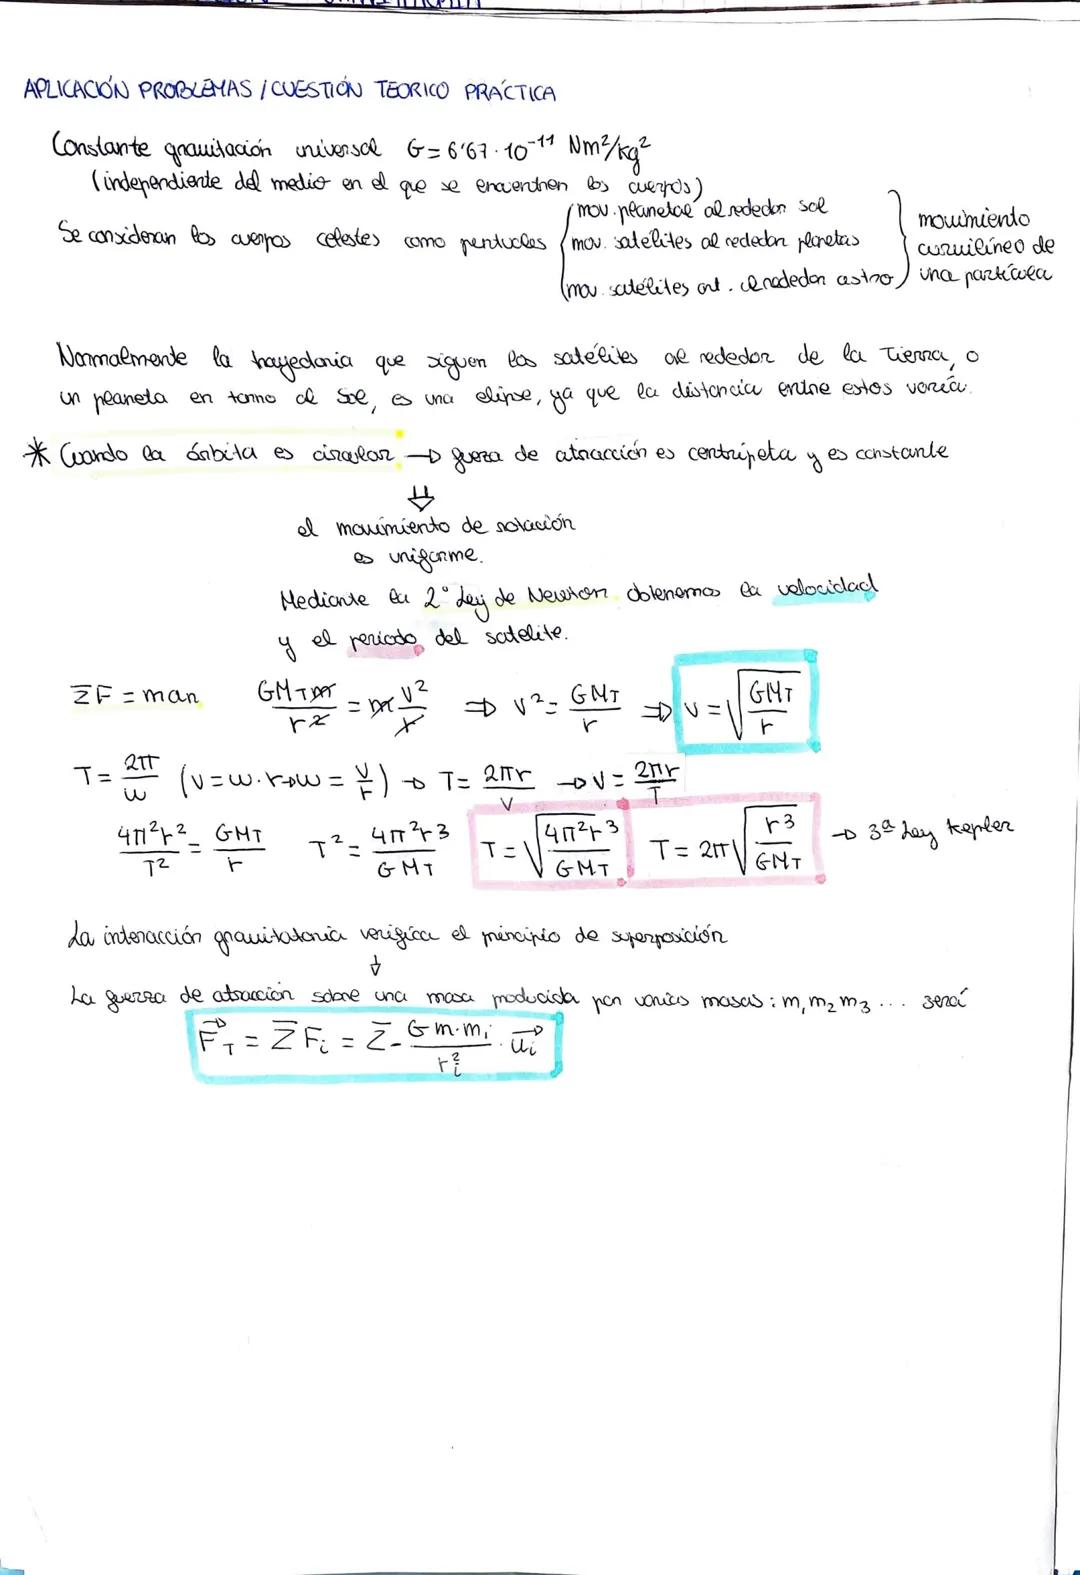 APLICACIÓN PROBLEMAS / CUESTIÓN TEORICO PRÁCTICA
Constante gravitación universal G = 6'67 · 10⁻¹¹ Nm²/kg²
(independiente del medio en el que se encuentren los cuerpos)
Se consideran los cuerpos celestes como partículas
mov. planetas al rededor sol
mov. satélites al rededor planetas
mov. satélites art. al rededor astro
movimiento
curvilíneo de
una partícula
Normalmente la trayectoria que siguen los satélites al rededor de la Tierra, o
un planeta en torno al Sol, es una elipse, ya que la distancia entre estos varía.
* Cuando la órbita es circular → fuerza de atracción es centrípeta y es constante
⇓
el movimiento de rotación
es uniforme.
Mediante la 2º Ley de Newton obtenemos la velocidad
y el periodo del satelite.
ΣF = m an GMT m / r² = m v²/r ⇒ v² = GMT/r ⇒ v = √(GMT/r)
T = 2π/w (v = w · r → w = v/r) → T = 2πr/v → v = 2πr/T
4π²r²/T² = GMT/r T² = 4π²r3/GMT T = √(4π²r3/GMT) T = 2π√(r3/GMT) → 3ª Ley Kepler
La interacción gravitatoria verifica el principio de superposición
↓
La fuerza de atracción sobre una masa producida por varias masas: m, m₂ m₃ ... será
F⃗T = Σ Fi = Σ - G m · mi / ri² · u⃗i